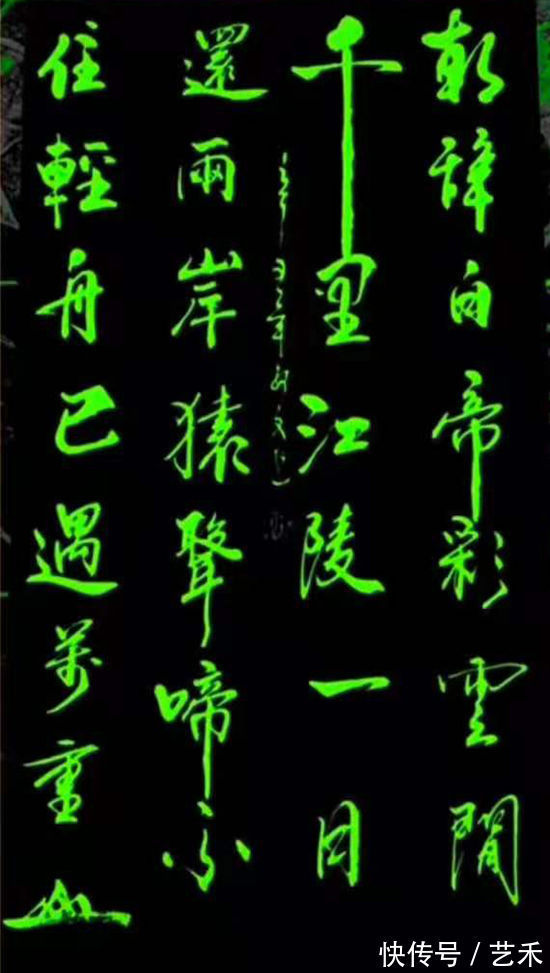 朝辭白帝彩雲間
千里江陵一日
還兩岸猿聲啼不
住輕舟已遇萬重山
快传号 / 艺禾